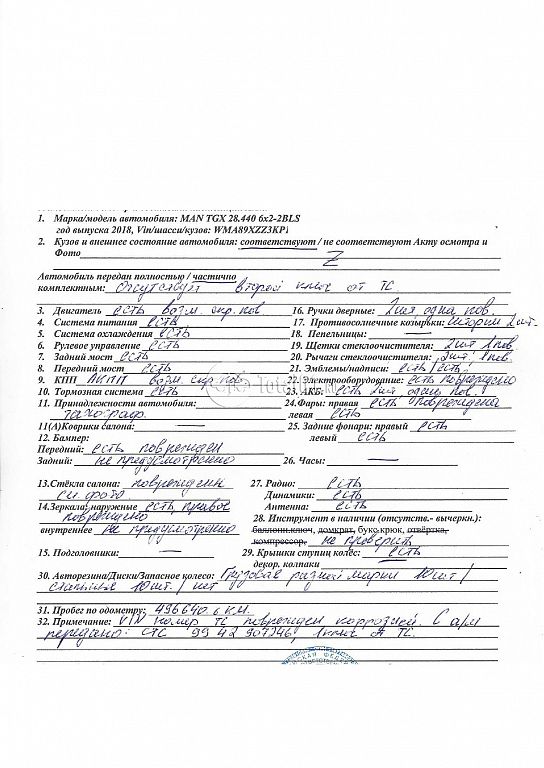 1. Марка/модель автомобиля: MAN TGX 28.440 6x2-2BLS
год выпуска 2018, Vin/шасси/кузов: WMA89XZZ3KP1
2. Кузов и внешнее состояние автомобиля: соответствуют / не соответствуют Акту осмотра и
Фото Z
Автомобиль передан полностью / частично
комплектным: Отсутствует второй ключ от ТС
3. Двигатель есть возм. скр. пов. 16. Ручки дверные: 2шт, одна пов.
4. Система питания есть 17. Противосолнечные козырьки: шторки 2 шт.
5. Система охлаждения есть 18. Пепельницы: —
6. Рулевое управление есть 19. Щетки стеклоочистителя: 2шт 1 пов.
7. Задний мост есть 20. Рычаги стеклоочистителя: 2шт. 1 пов.
8. Передний мост есть 21. Эмблемы/надписи: есть / есть
9. КПП АКПП возм. скр. пов. 22. Электрооборудование: есть повреждено
10. Тормозная система есть 23. АКБ: есть 2шт, одна пов.
11. Принадлежности автомобиля: 24. Фары: правая есть повреждена
тахограф. левая есть
11(А)Коврики салона: — 25. Задние фонари: правый есть
12. Бампер: левый есть
Передний: есть поврежден
Задний: не предусмотрено 26. Часы: —
13.Стёкла салона: повреждены 27. Радио: есть
см. фото. Динамики: есть
14.Зеркала: наружные есть, правое Антенна: есть
повреждено 28. Инструмент в наличии (отсутств.- вычеркн.):
внутреннее не предусмотрено баллонн.ключ, домкрат, букс.крюк, отвёртка,
компрессор, не проверить
15. Подголовники: — 29. Крышки ступиц колёс: есть
декор. колпаки —
30. Авторезина/Диски/Запасное колесо: Грузовая разной марки 10шт /
стальные 10шт. / нет
31. Пробег по одометру: 496640,6 км.
32. Примечание: VIN номер ТС поврежден коррозией. С а/м
передано: СТС 99 42 907246, 1 ключ от ТС.